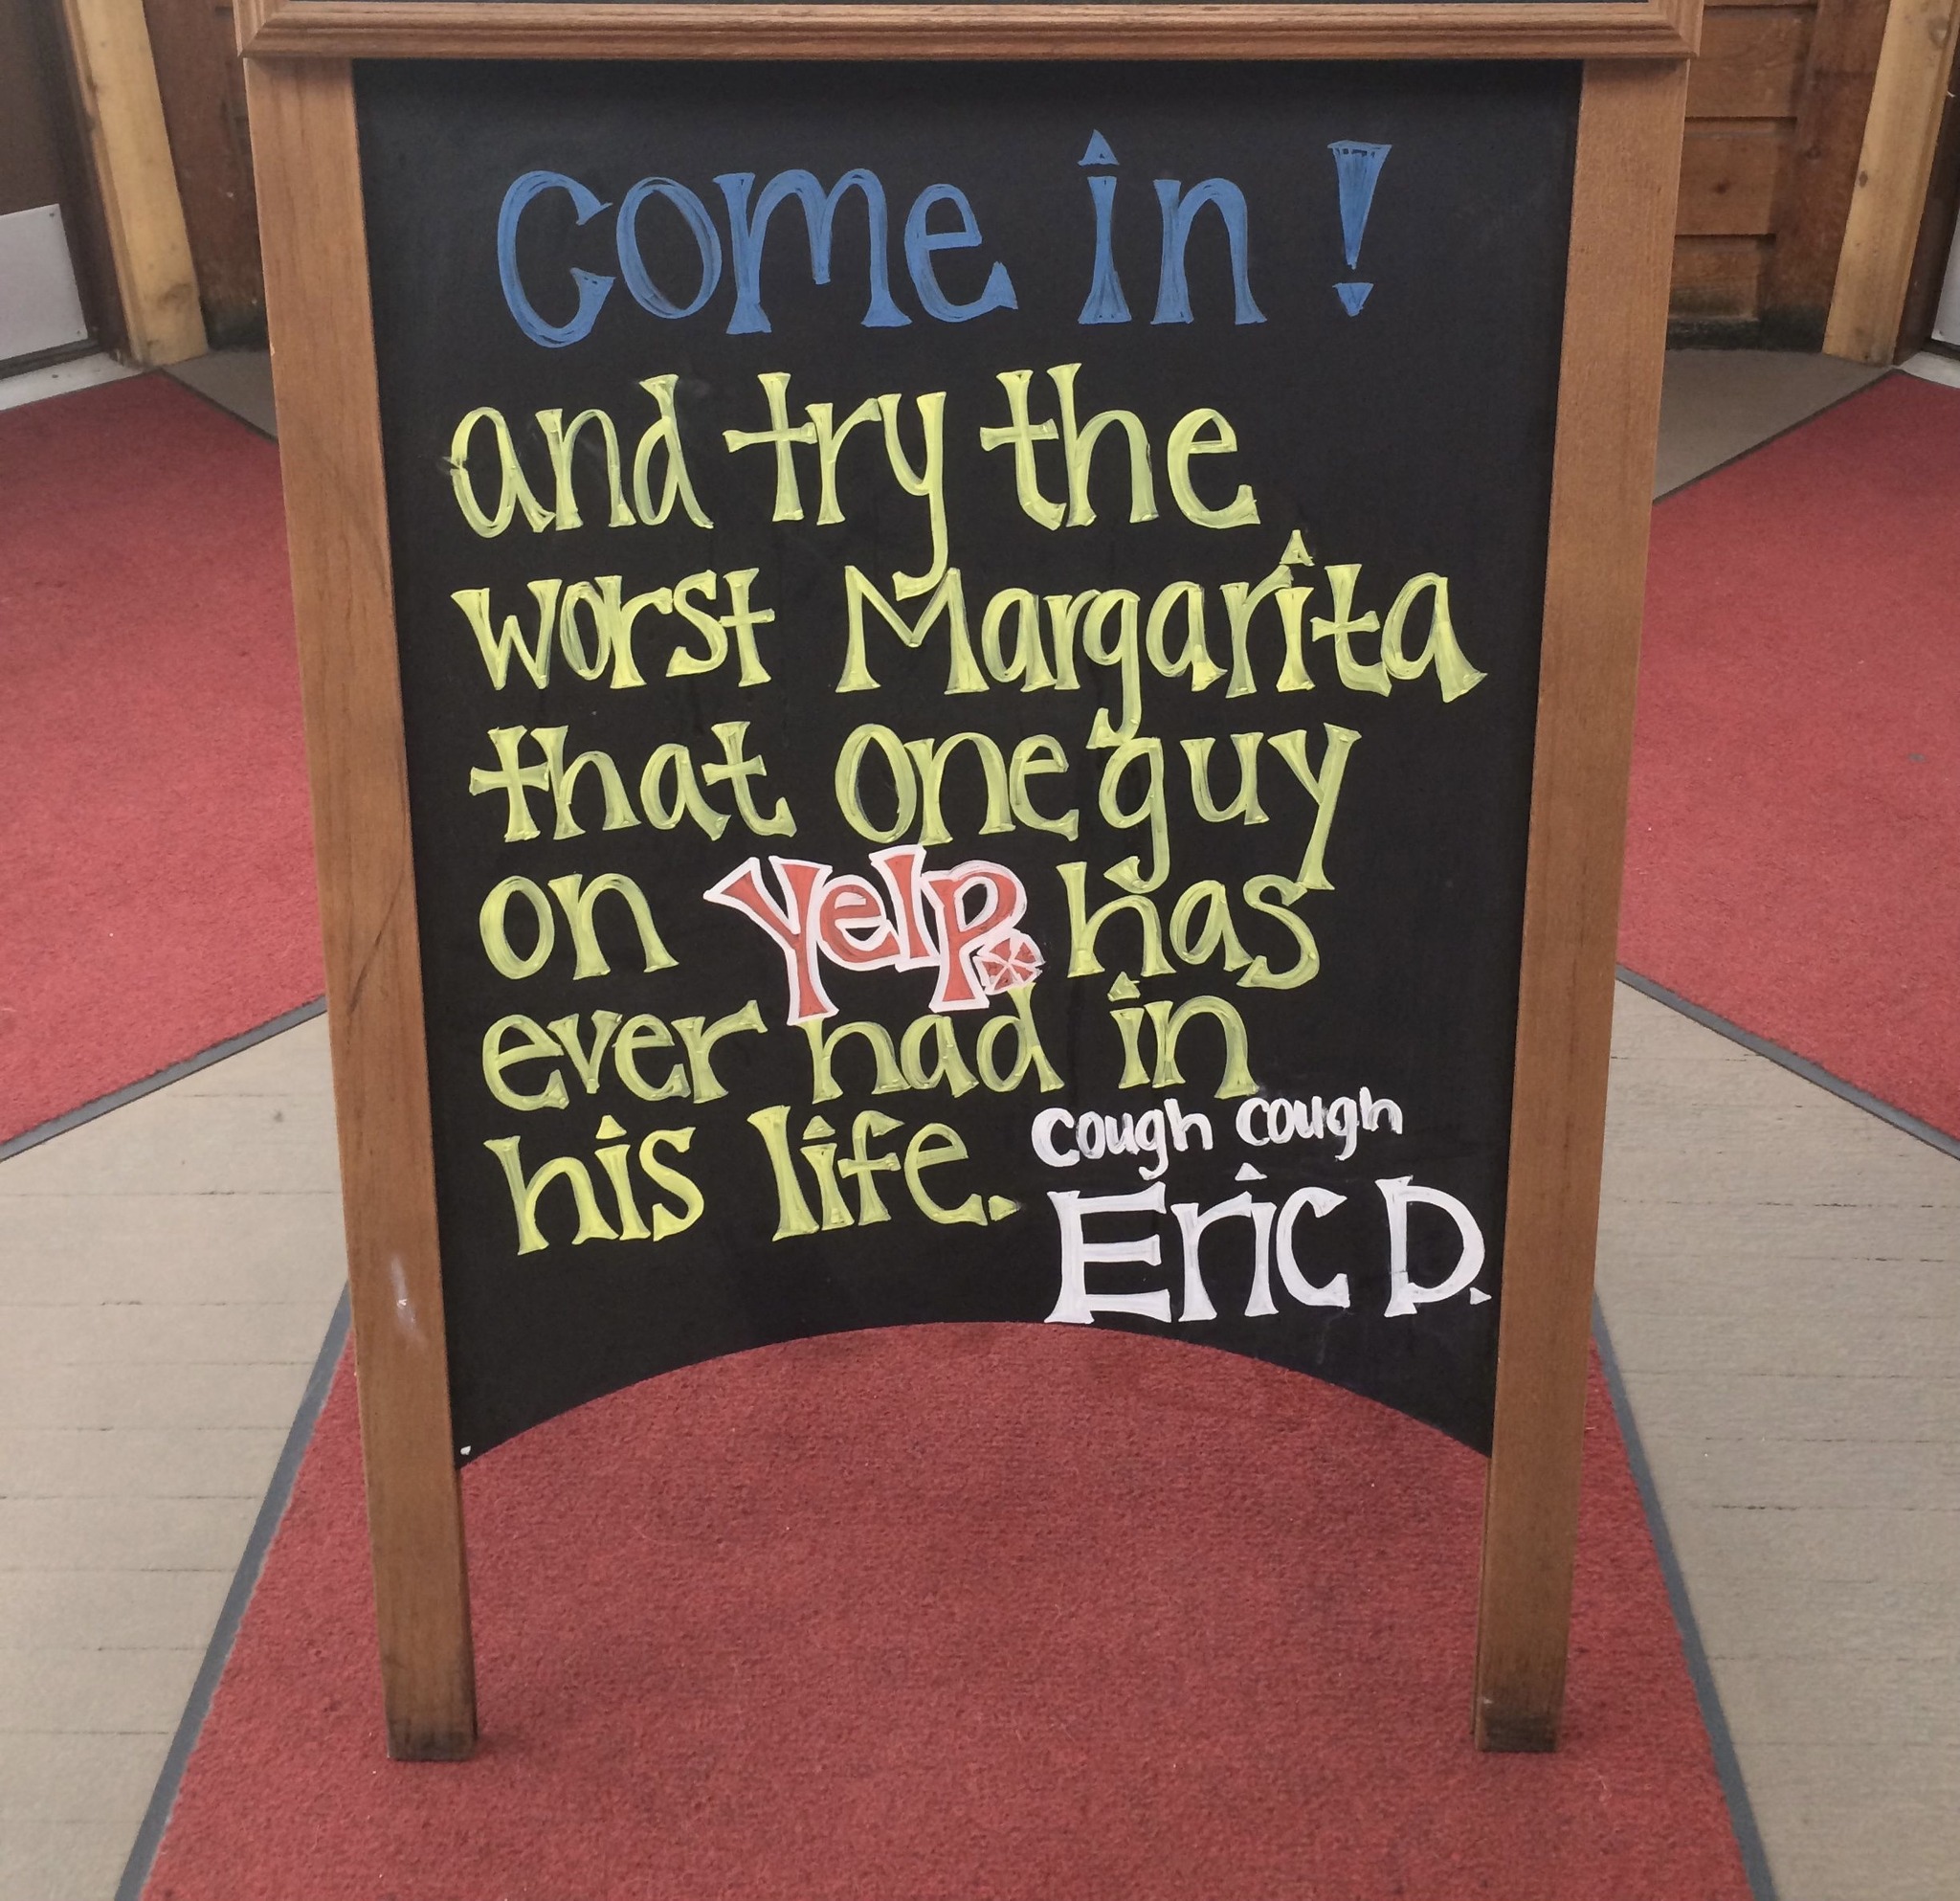 Come in!
and try the
worst Margarita
that one guy
on Yelp has
ever had in
his life.
Cough Cough
Eric D.